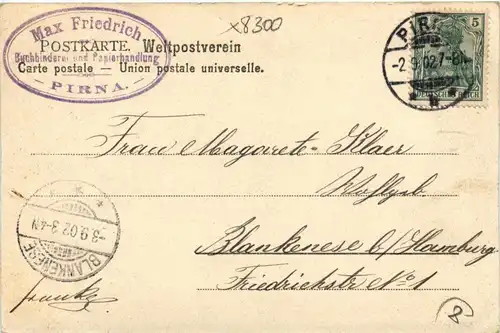 x8300
Max Friedrich
Buchbinderei und Papierhandlung
PIRNA.
POSTKARTE. Weltpostverein
Carte postale – Union postale universelle.
PIRNA
-2.9.02 7-8N.
5
DEUTSCHES REICH
Frau Magarete Klaer
Wohlgeb.
Blankenese b/Hamburg
Friedrichstr No 1
-3.9.02.3-4N
BLANKENESE
2